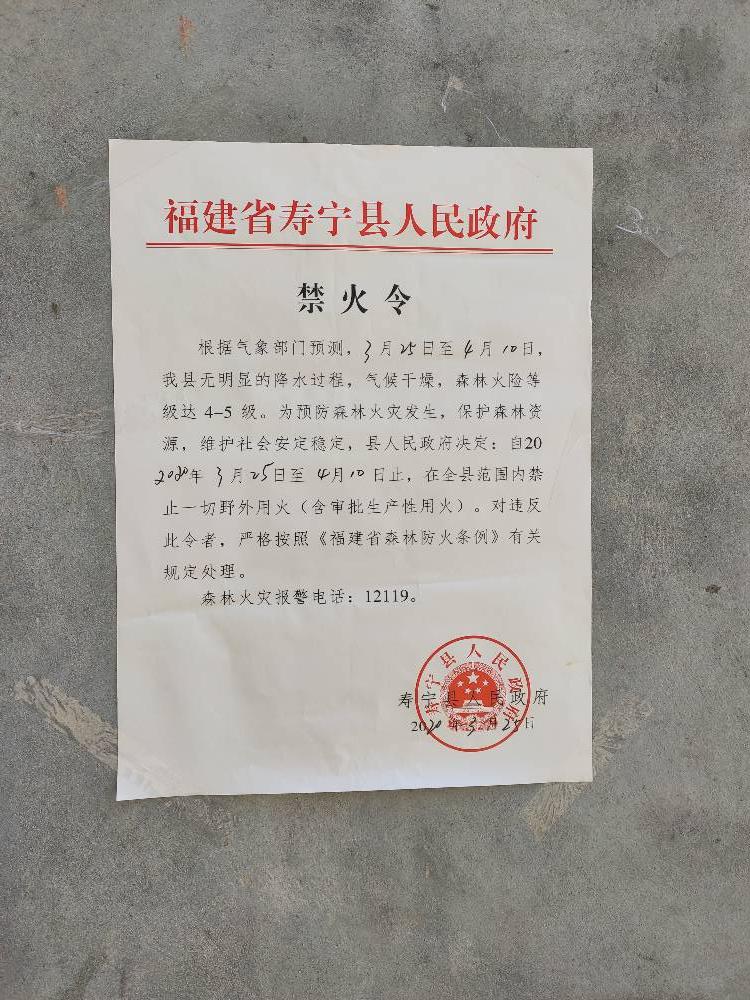 福建省寿宁县人民政府
禁火令
根据气象部门预测，3月25日至4月10日，
我县无明显的降水过程，气候干燥，森林火险等
级达 4-5 级。为预防森林火灾发生，保护森林资
源，维护社会安定稳定，县人民政府决定：自20
2020年 3月25日至 4月10日止，在全县范围内禁
止一切野外用火（含审批生产性用火）。对违反
此令者，严格按照《福建省森林防火条例》有关
规定处理。
森林火灾报警电话：12119。
寿宁县人民政府
寿宁县人民政府
2020年3月25日